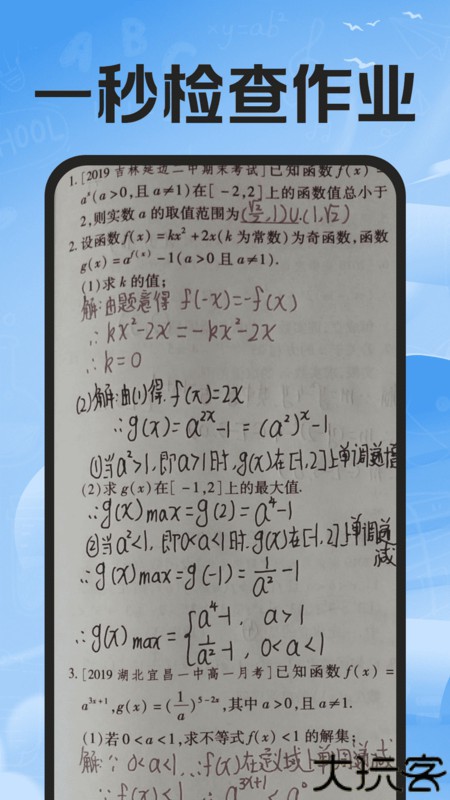 一秒检查作业
1. [2019 吉林延边二中期末考试] 已知函数 f(x) =
aˣ(a>0,且 a≠1)在[-2,2]上的函数值总小于
2,则实数 a 的取值范围为(√2/2,1)∪(1,√2)
2. 设函数 f(x)=kx²+2x(k 为常数)为奇函数,函数
g(x)=a^{f(x)}-1(a>0 且 a≠1).
(1)求 k 的值;
解:由题意得 f(-x)=-f(x)
∴kx²-2x=-kx²-2x
∴k=0
(2)解:由(1)得.f(x)=2x
∴g(x)=a^{2x}-1=(a²)^x-1
①当a²>1,即a>1时,g(x)在[-1,2]上单调递增
(2)求 g(x)在[-1,2]上的最大值.
∴g(x)max=g(2)=a⁴-1
②当a²<1,即0<a<1时.g(x)在[-1,2]上单调递减
∴g(x)max=g(-1)=1/a²-1
∴g(x)max={a⁴-1, a>1
1/a²-1, 0<a<1
3. [2019 湖北宜昌一中高一月考] 已知函数 f(x) =
a^{3x+1},g(x)=(1/a)^{5-2x},其中 a>0,且 a≠1.
(1)若 0<a<1,求不等式 f(x)<1 的解集;
解:∵0<a<1.∴f(x)在定义域上单调递减
大玩客
∵f(x)<1